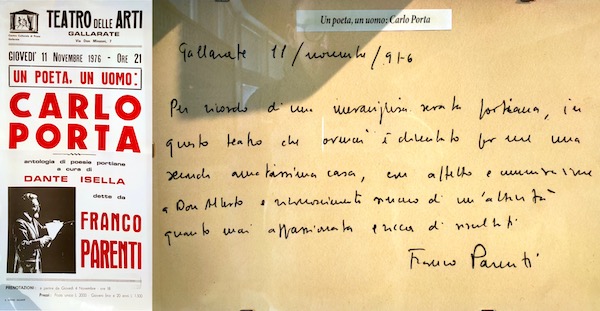 TEATRO DELLE ARTI
GALLARATE
Via Don Minzoni, 7
GIOVEDI' 11 NOVEMBRE 1976 - ORE 21
UN POETA, UN UOMO:
CARLO
PORTA
antologia di poesie portiane
a cura di
DANTE ISELLA
dette da
FRANCO
PARENTI
PRENOTAZIONI: a partire da Giovedì 4 Novembre
Prezzi:
Un poeta, un uomo: Carlo Porta
Gallarate 11/novembre/976
Per ricordo di una meravigliosa serata portiana, in
questo teatro che oramai è diventato per me una
seconda amatissima casa, con affetto e ammirazione
a Don Alberto e riconoscimento sincero di un'attività
quanto mai appassionata e ricca di risultati
Franco Parenti